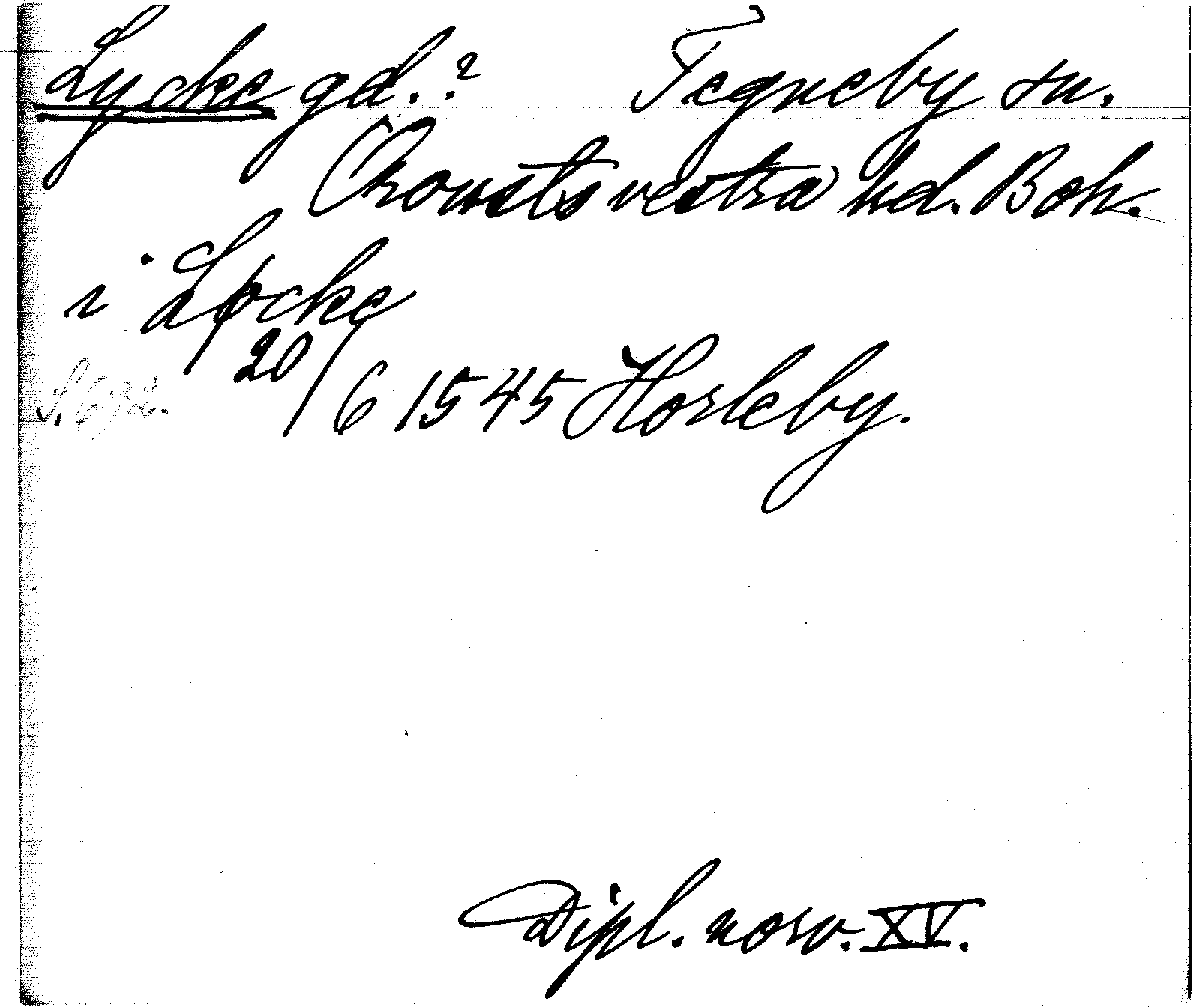 Lycke gd.? Tegneby sn.
Orowsts vestra hd. Boh.
i Løcke
S. 632. 20/6 1545 Horleby.
Dipl. norv. XV.